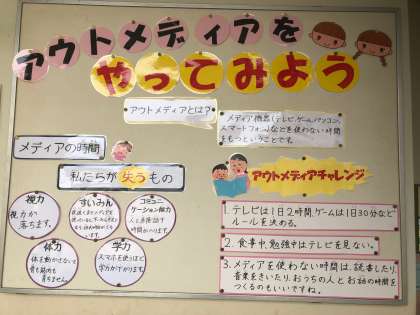 アウトメディアを
やってみよう
アウトメディアとは?
メディア機器(テレビ、ゲーム、パソコン、
スマートフォン)などを使わない時間
をもつということです。
メディアの時間
私たちが失うもの
視力
視力が
落ちます。
すいみん
コミュニ
ケーション能力
体力
体を動かさないで
骨も筋肉も
育ちません。
学力
スマホを使うほど
学力が下がります。
アウトメディアチャレンジ
1.テレビは1日2時間、ゲームは1日30分など
ルールを決める。
2.食事中、勉強中はテレビを見ない。
3.メディアを使わない時間は、読書したり、
音楽をきいたり、おうちの人とお話の時間を
つくるのもいいですね。